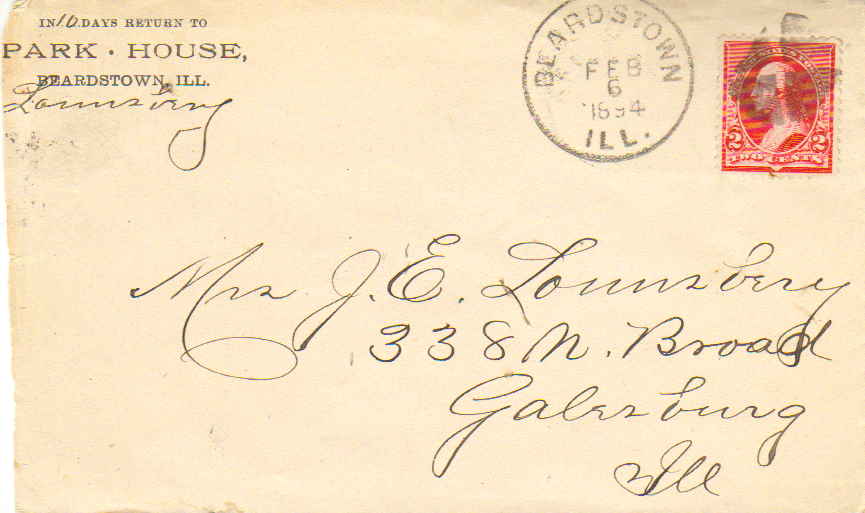 IN 10 DAYS RETURN TO
PARK · HOUSE,
BEARDSTOWN, ILL.
Lounsbery
BEARDSTOWN
FEB
6
1894
ILL.
2 2
TWO CENTS
Mrs J. E. Lounsbery
338 N. Broad
Galesburg
Ill